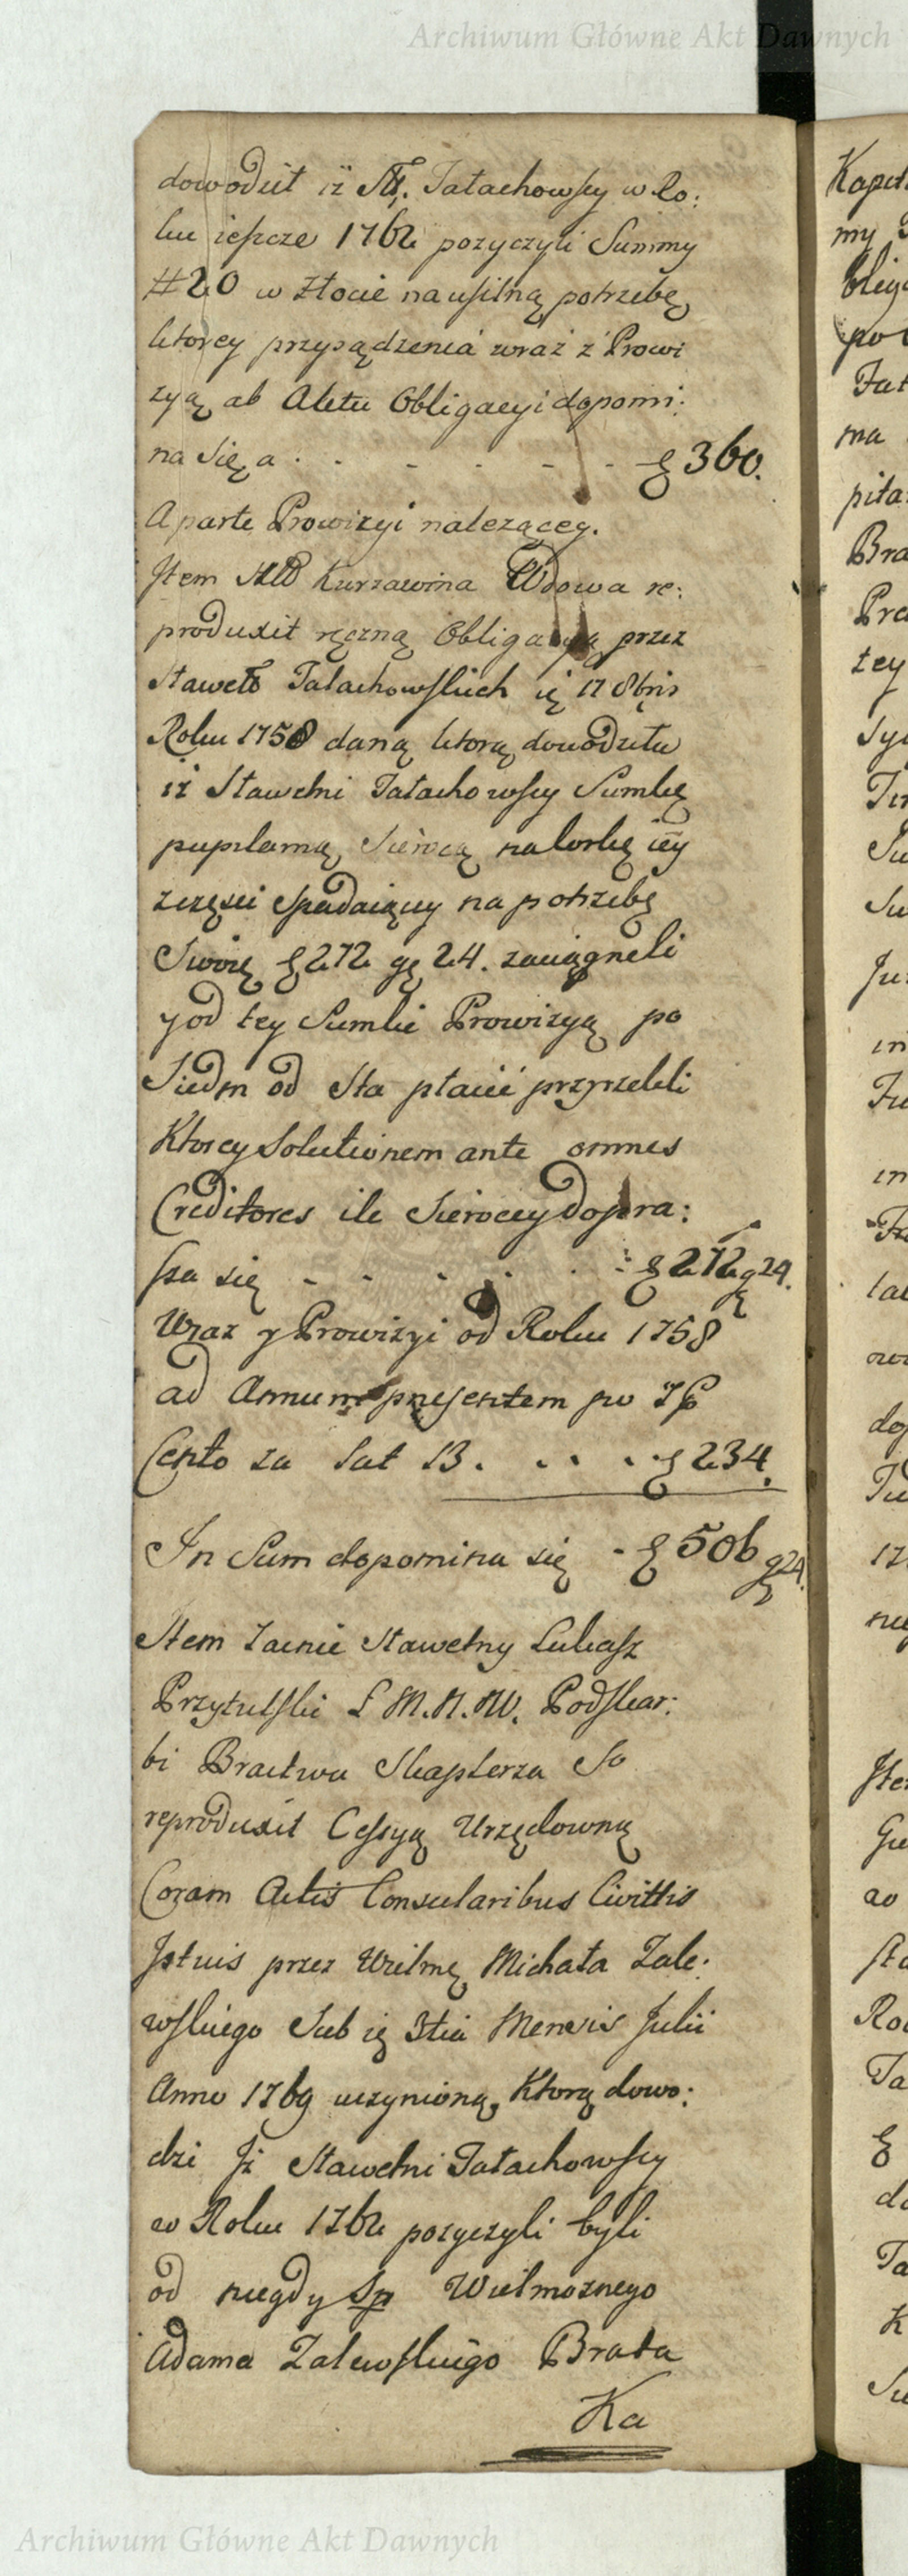 Archiwum Główne Akt Dawnych
dowodził iż Sł. Tałachowscy w Ro:
ku ieszcze 1762 pozyczyli Summy
#20 w złocie na usilną potrzebę
ktorey przysądzenia wraz z Prowi
zyą ab Actu Obligacyi dopomi:
na się a . . - - - - - 360.
Aparte Prowizyi nalezącey.
Item Kurzawina Wdowa re:
produxit ręczną Obligacyą przez
Sławet Tałachowskich 17 8bris
Roku 1758 daną ktorą dowodziła
iż Sławetni Tałachowscy Sumkę
pupilarną Sierocą na Corkę iey
z części Spadaiący na potrzebę
Swoię 272 gę 24. zaciągneli
y od tey Sumki Prowizyą po
Siedm od Sta płacić przyrzekli
Ktorey Solutionem ante omnes
Creditores ile Sierocey dopra:
sza się - - - - - 272 g 24.
Wraz y Prowizyi od Roku 1758
ad Annum presentem po 7 p
Cento za Lat 13. . . . . 234.
In Sum dopomina się - 506 g 24.
Item Zacnie Sławetny Lukasz
Przytulski Ł M. N. W. Podskar:
bi Bractwa Skaplerza So
reproduxit Cessyą Urzędowną
Coram Actis Consularibus Civittis
Istuis przez Wielmę Michała Zale:
wskiego Sub 3tia Mensis Julii
Anno 1769 uczynioną, Ktorą dowo:
dzi Iż Sławetni Tałachowscy
w Roku 1762 pozyczyli byli
od niegdy Sp Wielmoznego
Adama Zalewskiego Brata
Ka
Archiwum Główne Akt Dawnych